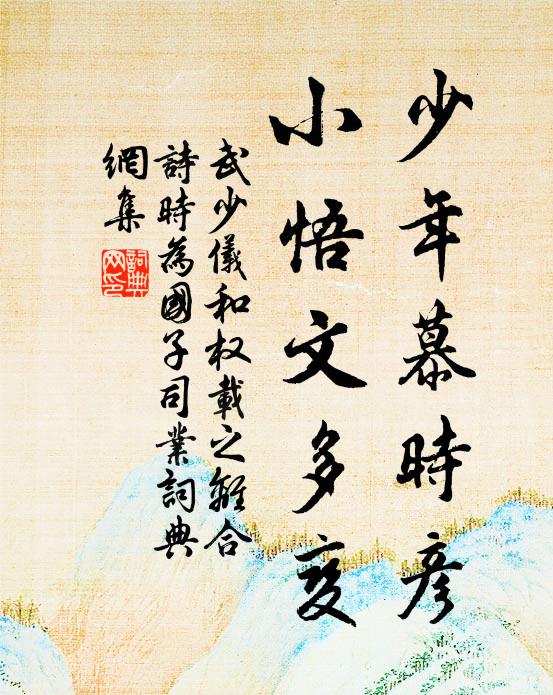 少年慕時彥
小悟文多變
武少儀和权載之離合
詩時為國子司業詞典
網集
詞典
网印